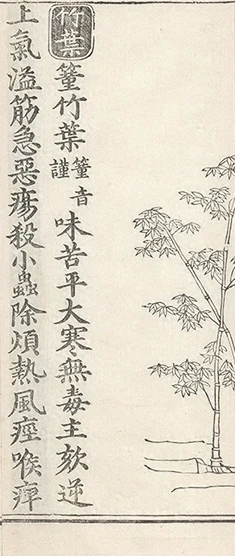 竹葉
䈽竹葉䈽音謹味苦平大寒無毒主欬逆
上氣溢筋急惡瘍殺小蟲除煩熱風痓喉痺